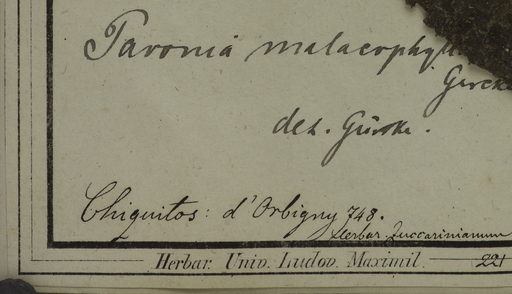 Pavonia malacophyll
Gürcke
det. Gürke.
Chiquitos: d'Orbigny 748.
Herbar. Zuccarinianum
Herbar. Univ. Ludov. Maximil. 221